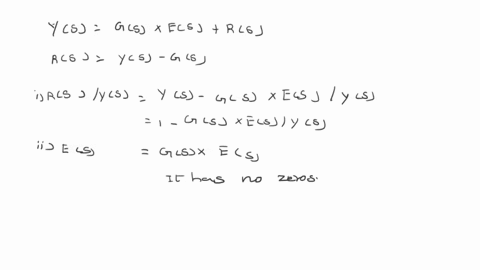 Y(s) = G(s) x E(s) + R(s)
R(s) = Y(s) - G(s)
i) R(s) / Y(s) = Y(s) - G(s) x E(s) / Y(s)
= 1 - G(s) x E(s) / Y(s)
ii) E(s) = G(s) x E(s)
It has no zeros.